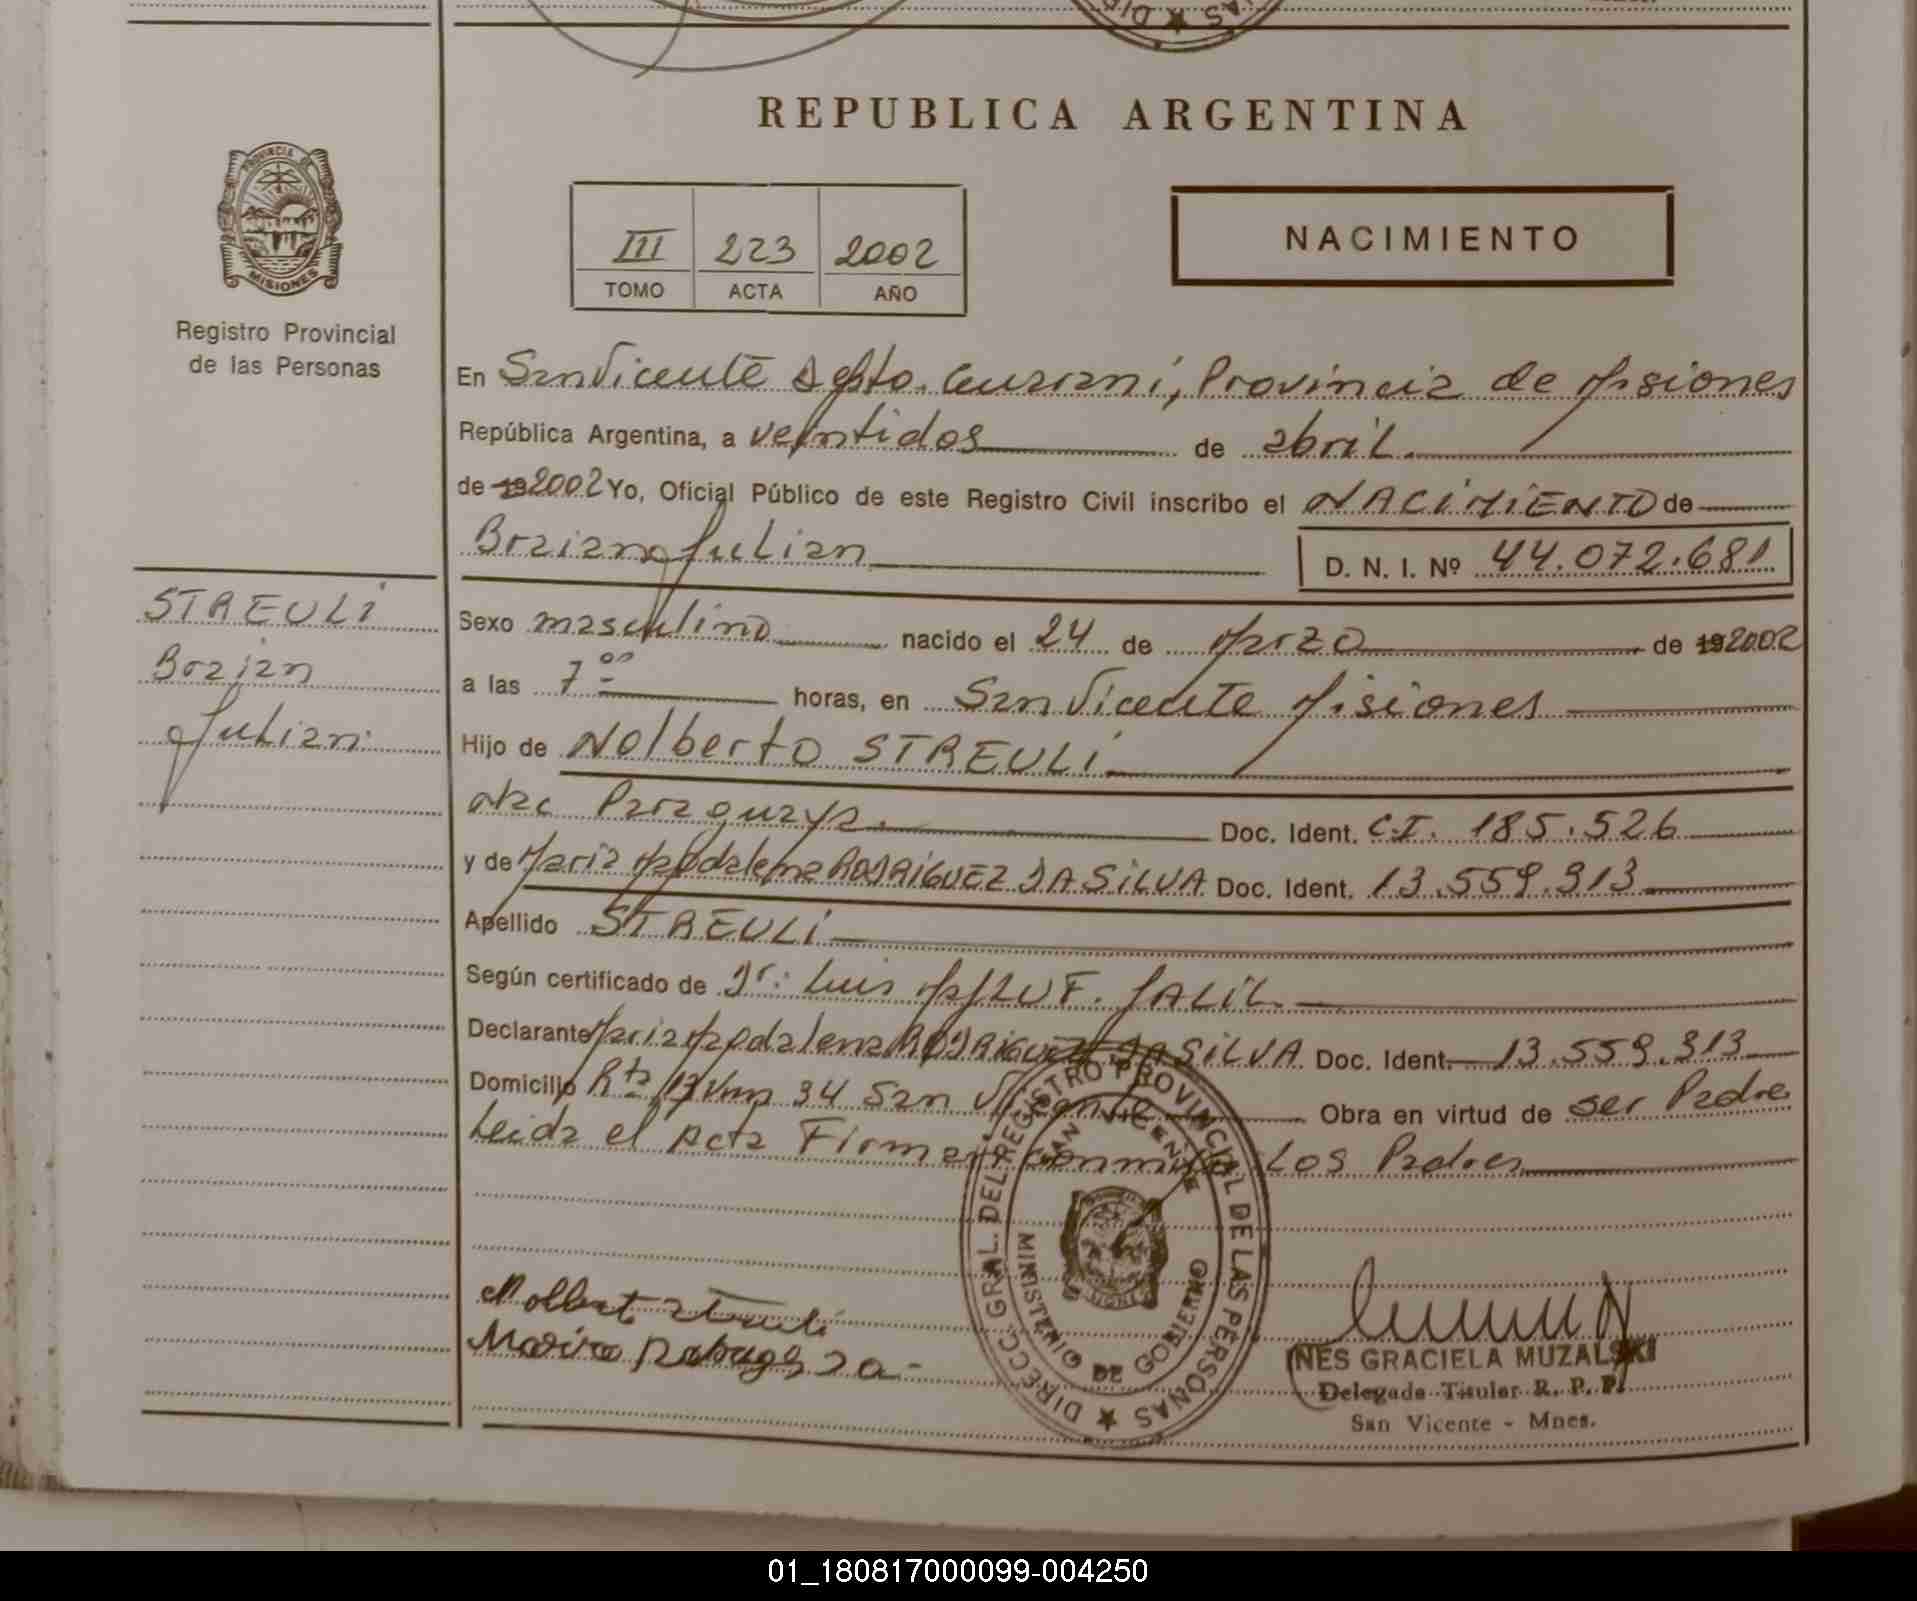 REPUBLICA ARGENTINA
PROVINCIA DE
MISIONES
Registro Provincial
de las Personas
III 223 2002
TOMO ACTA AÑO
NACIMIENTO
En San Vicente Dpto. Guarani, Provincia de Misiones
República Argentina, a veintidos de abril.
de 192002 Yo, Oficial Público de este Registro Civil inscribo el NACIMIENTO de
Julian
D. N. I. Nº 44.072.681
STREULI
Julian
Sexo masculino nacido el 24 de Marzo de 192002
a las 7 oo horas, en San Vicente Misiones
Hijo de Nolberto STREULI
nac Paraguya. Doc. Ident. C.I. 185.526
y de Maria Magdalena RODRIGUEZ DA SILVA Doc. Ident. 13.559.313
Apellido STREULI
Según certificado de Dr: Luis F. JALIL.
Declarante Maria Magdalena RODRIGUEZ DA SILVA Doc. Ident. 13.559.313
Domicilio Rta 13 Km 34 San Vicente Obra en virtud de ser Padre
Leida el Acta Firman conmigo Los Padres
DIRECC. GRAL. DEL REGISTRO PROVINCIAL DE LAS PERSONAS
SAN VICENTE
MINISTERIO DE GOBIERNO
INES GRACIELA MUZALSKI
Delegada Titular R. P. P.
San Vicente - Mnes.
01_180817000099-004250